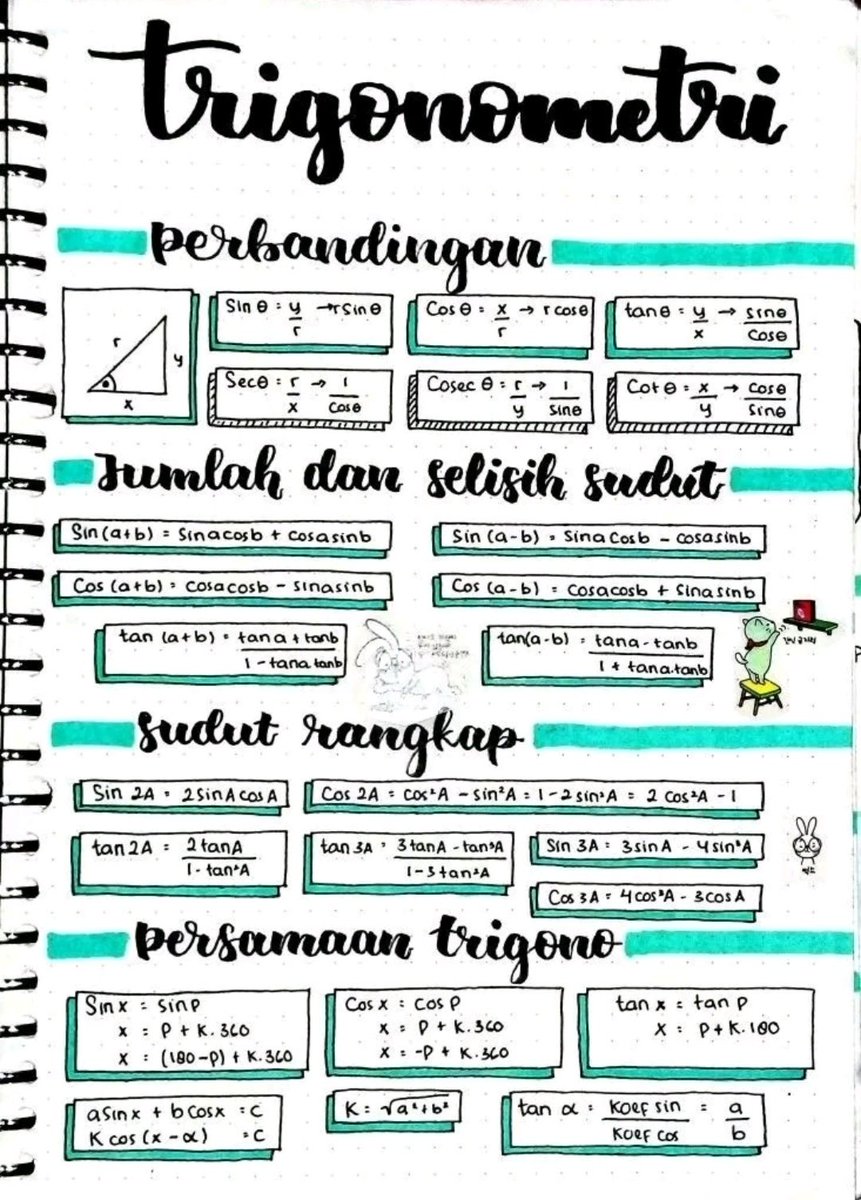 trigonometri
perbandingan
r
y
x
θ
Sin θ = y/r → r sin θ
Cos θ = x/r → r cos θ
tan θ = y/x → sin θ/cos θ
Sec θ = r/x → 1/cos θ
Cosec θ = r/y → 1/sin θ
Cot θ = x/y → cos θ/sin θ
Jumlah dan selisih sudut
Sin (a+b) = sin a cos b + cos a sin b
Sin (a-b) = sin a cos b - cos a sin b
Cos (a+b) = cos a cos b - sin a sin b
Cos (a-b) = cos a cos b + sin a sin b
tan (a+b) = tan a + tan b/1 - tan a tan b
tan (a-b) = tan a - tan b/1 + tan a . tan b
sudut rangkap
Sin 2A = 2 sin A cos A
Cos 2A = cos²A - sin²A = 1 - 2 sin²A = 2 cos²A - 1
tan 2A = 2 tan A/1 - tan²A
tan 3A = 3 tan A - tan³A/1 - 3 tan²A
Sin 3A = 3 sin A - 4 sin³A
Cos 3A = 4 cos³A - 3 cos A
persamaan trigono
Sin x = sin p
x = p + k.360
x = (180-p) + k.360
Cos x = cos p
x = p + k.360
x = -p + k.360
tan x = tan p
x = p + k.180
a sin x + b cos x = c
K cos (x - α) = c
K = √a²+b²
tan α = koef sin/koef cos = a/b